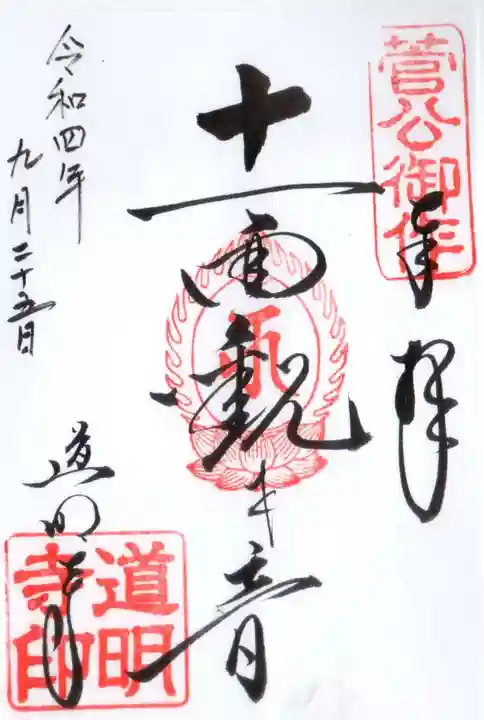 菅公御作
奉拝
十一面観世音
道明寺
令和四年
九月二十五日
道明
寺印